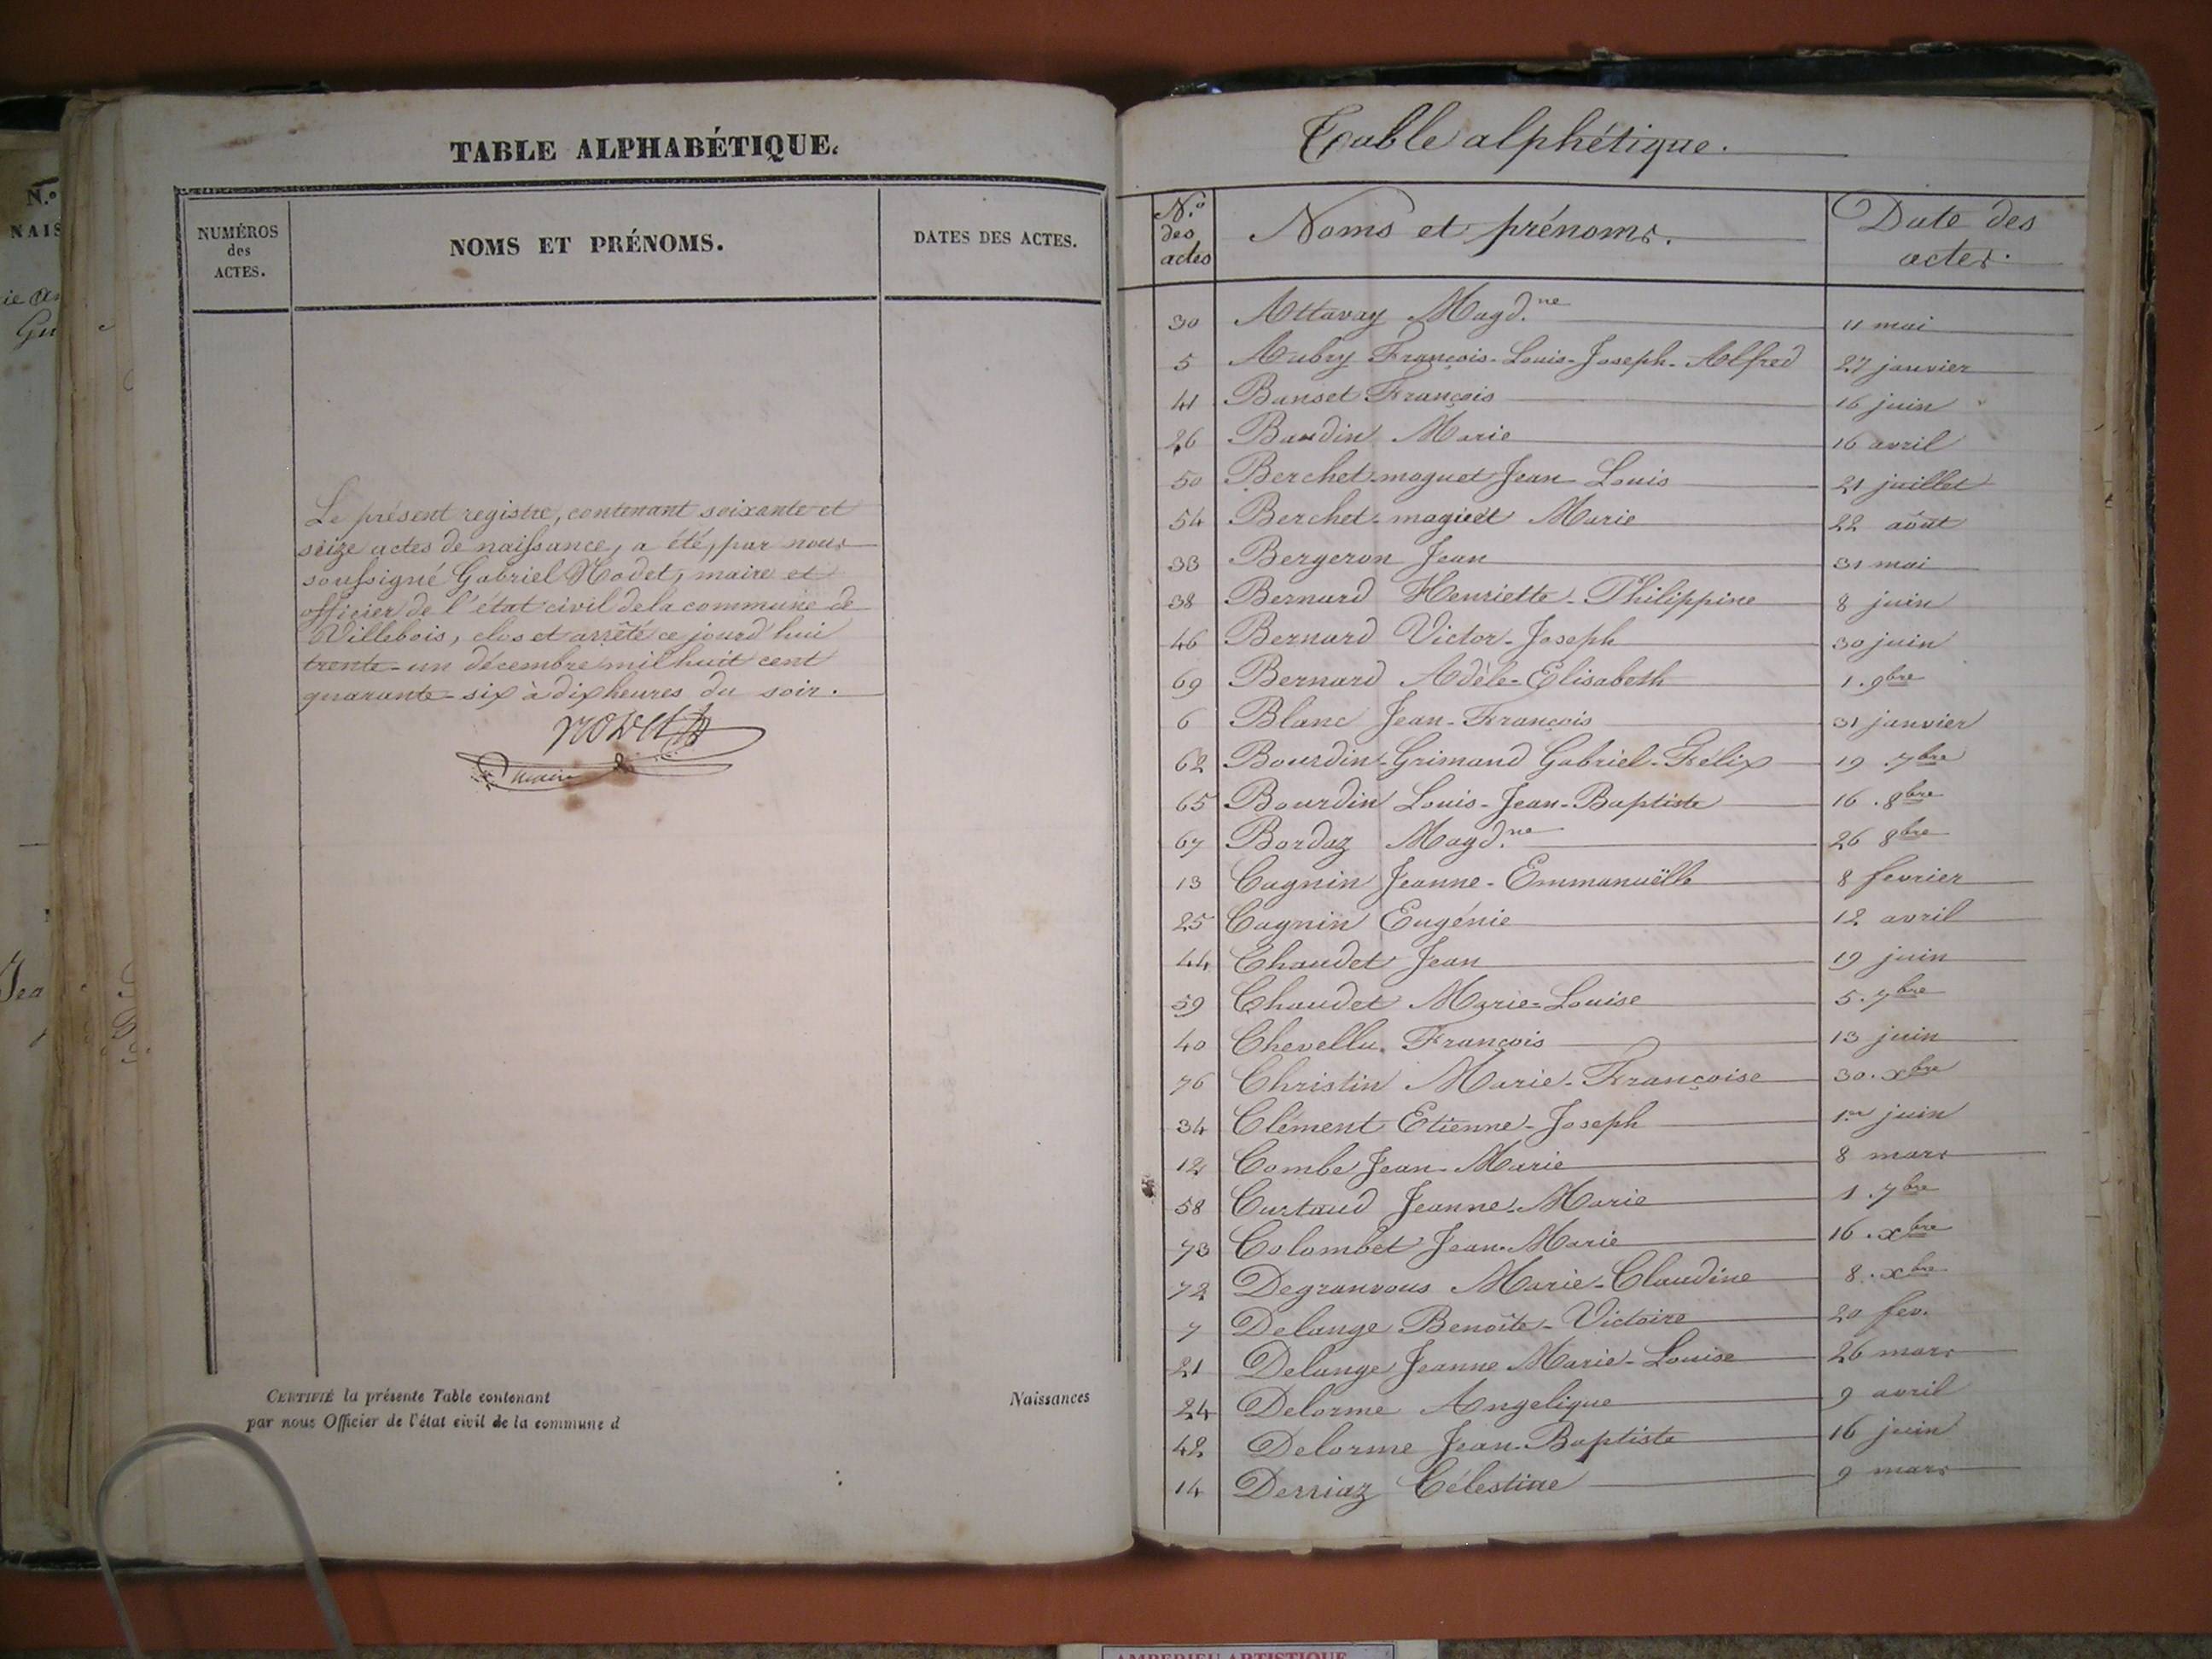 N.º
NAIS
Gu
Jea
TABLE ALPHABÉTIQUE.
NUMÉROS
des
ACTES.
NOMS ET PRÉNOMS.
DATES DES ACTES.
Le présent registre, contenant soixante et
seize actes de naissance, a été, par nous
soussigné Gabriel Nodet, maire et
officier de l'état civil de la commune de
Villebois, clos et arrêté ce jourd'hui
trente-un décembre mil huit cent
quarante-six à dix heures du soir.
Nodet
maire
CERTIFIÉ la présente Table contenant
Naissances
par nous Officier de l'état civil de la commune d
Table alphétique.
N.º des actes Noms et prénoms. Date des actes.
30 Attavay Magd.ne 11 mai
5 Aubry François-Louis-Joseph-Alfred 27 janvier
41 Banset François 16 juin
26 Baudin Marie 16 avril
50 Berchet-maguet Jean Louis 21 juillet
54 Berchet-maguet Marie 22 août
33 Bergeron Jean 31 mai
38 Bernard Henriette-Philippine 8 juin
46 Bernard Victor-Joseph 30 juin
69 Bernard Adèle-Elisabeth 1.9bre
6 Blanc Jean-François 31 janvier
62 Bourdin-Grimaud Gabriel-Félix 19.7bre
65 Bourdin Louis-Jean-Baptiste 16.8bre
67 Bordaz Magd.ne 26 8bre
13 Cagnin Jeanne-Emmanuëlle 8 fevrier
25 Cagnin Eugénie 12 avril
44 Chaudet Jean 19 juin
59 Chaudet Marie-Louise 5.7bre
40 Chevellu François 13 juin
76 Christin Marie-Françoise 30.xbre
34 Clément Etienne-Joseph 1er juin
12 Combe Jean-Marie 8 mars
58 Curtaud Jeanne-Marie 1.7bre
73 Colombet Jean-Marie 16.xbre
72 Degranvous Marie-Claudine 8.xbre
7 Delange Benoîte-Victoire 20 fev.
21 Delange Jeanne Marie-Louise 26 mars
24 Delorme Angelique 9 avril
42 Delorme Jean-Baptiste 16 juin
14 Derriaz Célestine 9 mars
AMBERIEU ARTISTIQUE